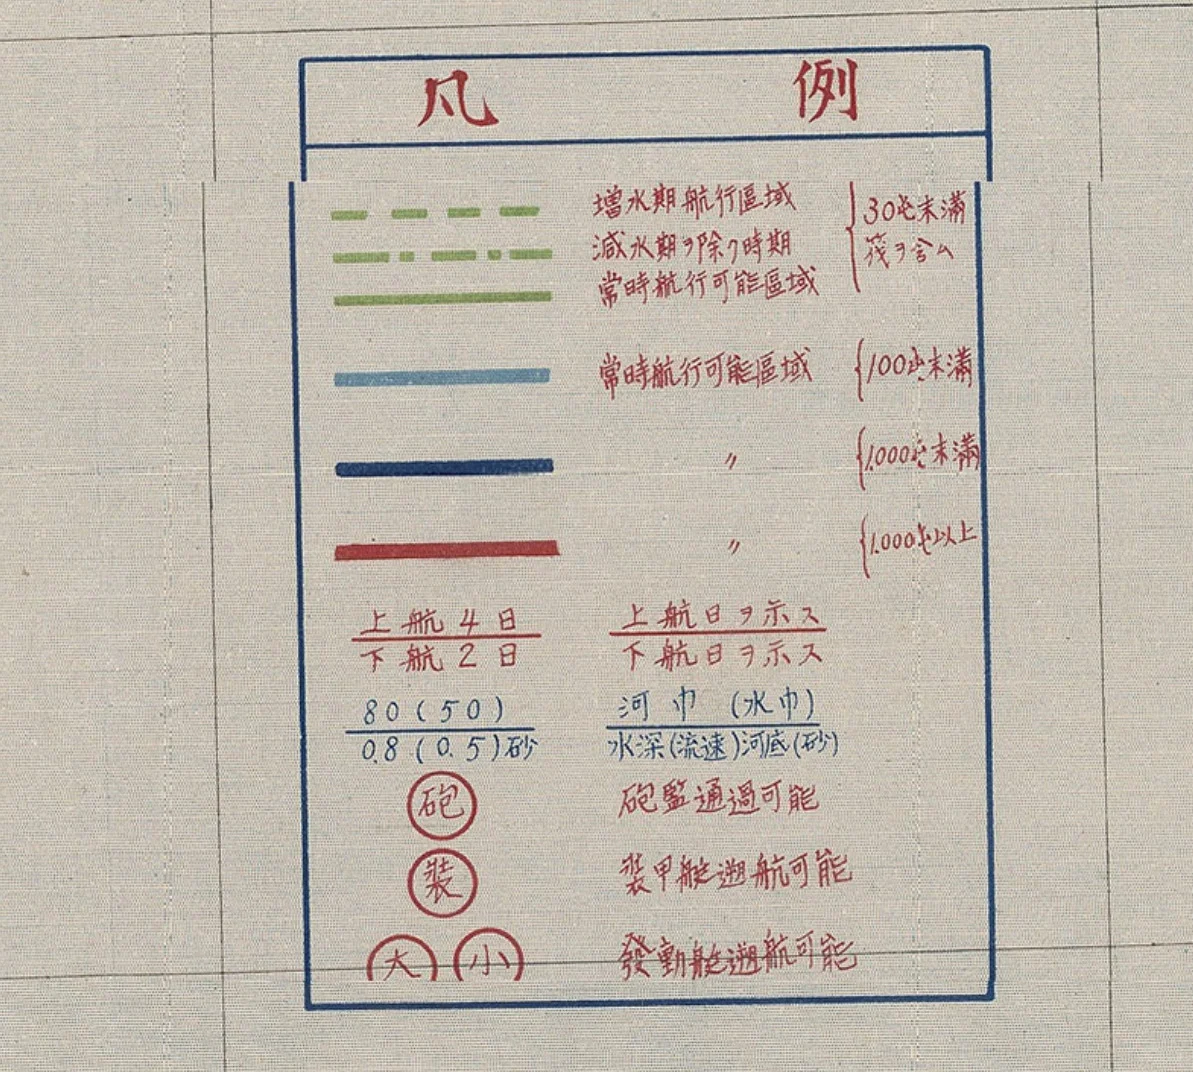 凡例
増水期航行區域
減水期ヲ除ク時期
常時航行可能區域
30屯未滿
筏ヲ含ム
常時航行可能區域 100屯未滿
〃 1.000屯未滿
〃 1.000屯以上
上航4日 上航日ヲ示ス
下航2日 下航日ヲ示ス
80(50) 河巾(水巾)
0.8(0.5)砂 水深(流速)河底(砂)
砲 砲監通過可能
装 装甲艇遡航可能
大 小 發動艇遡航可能